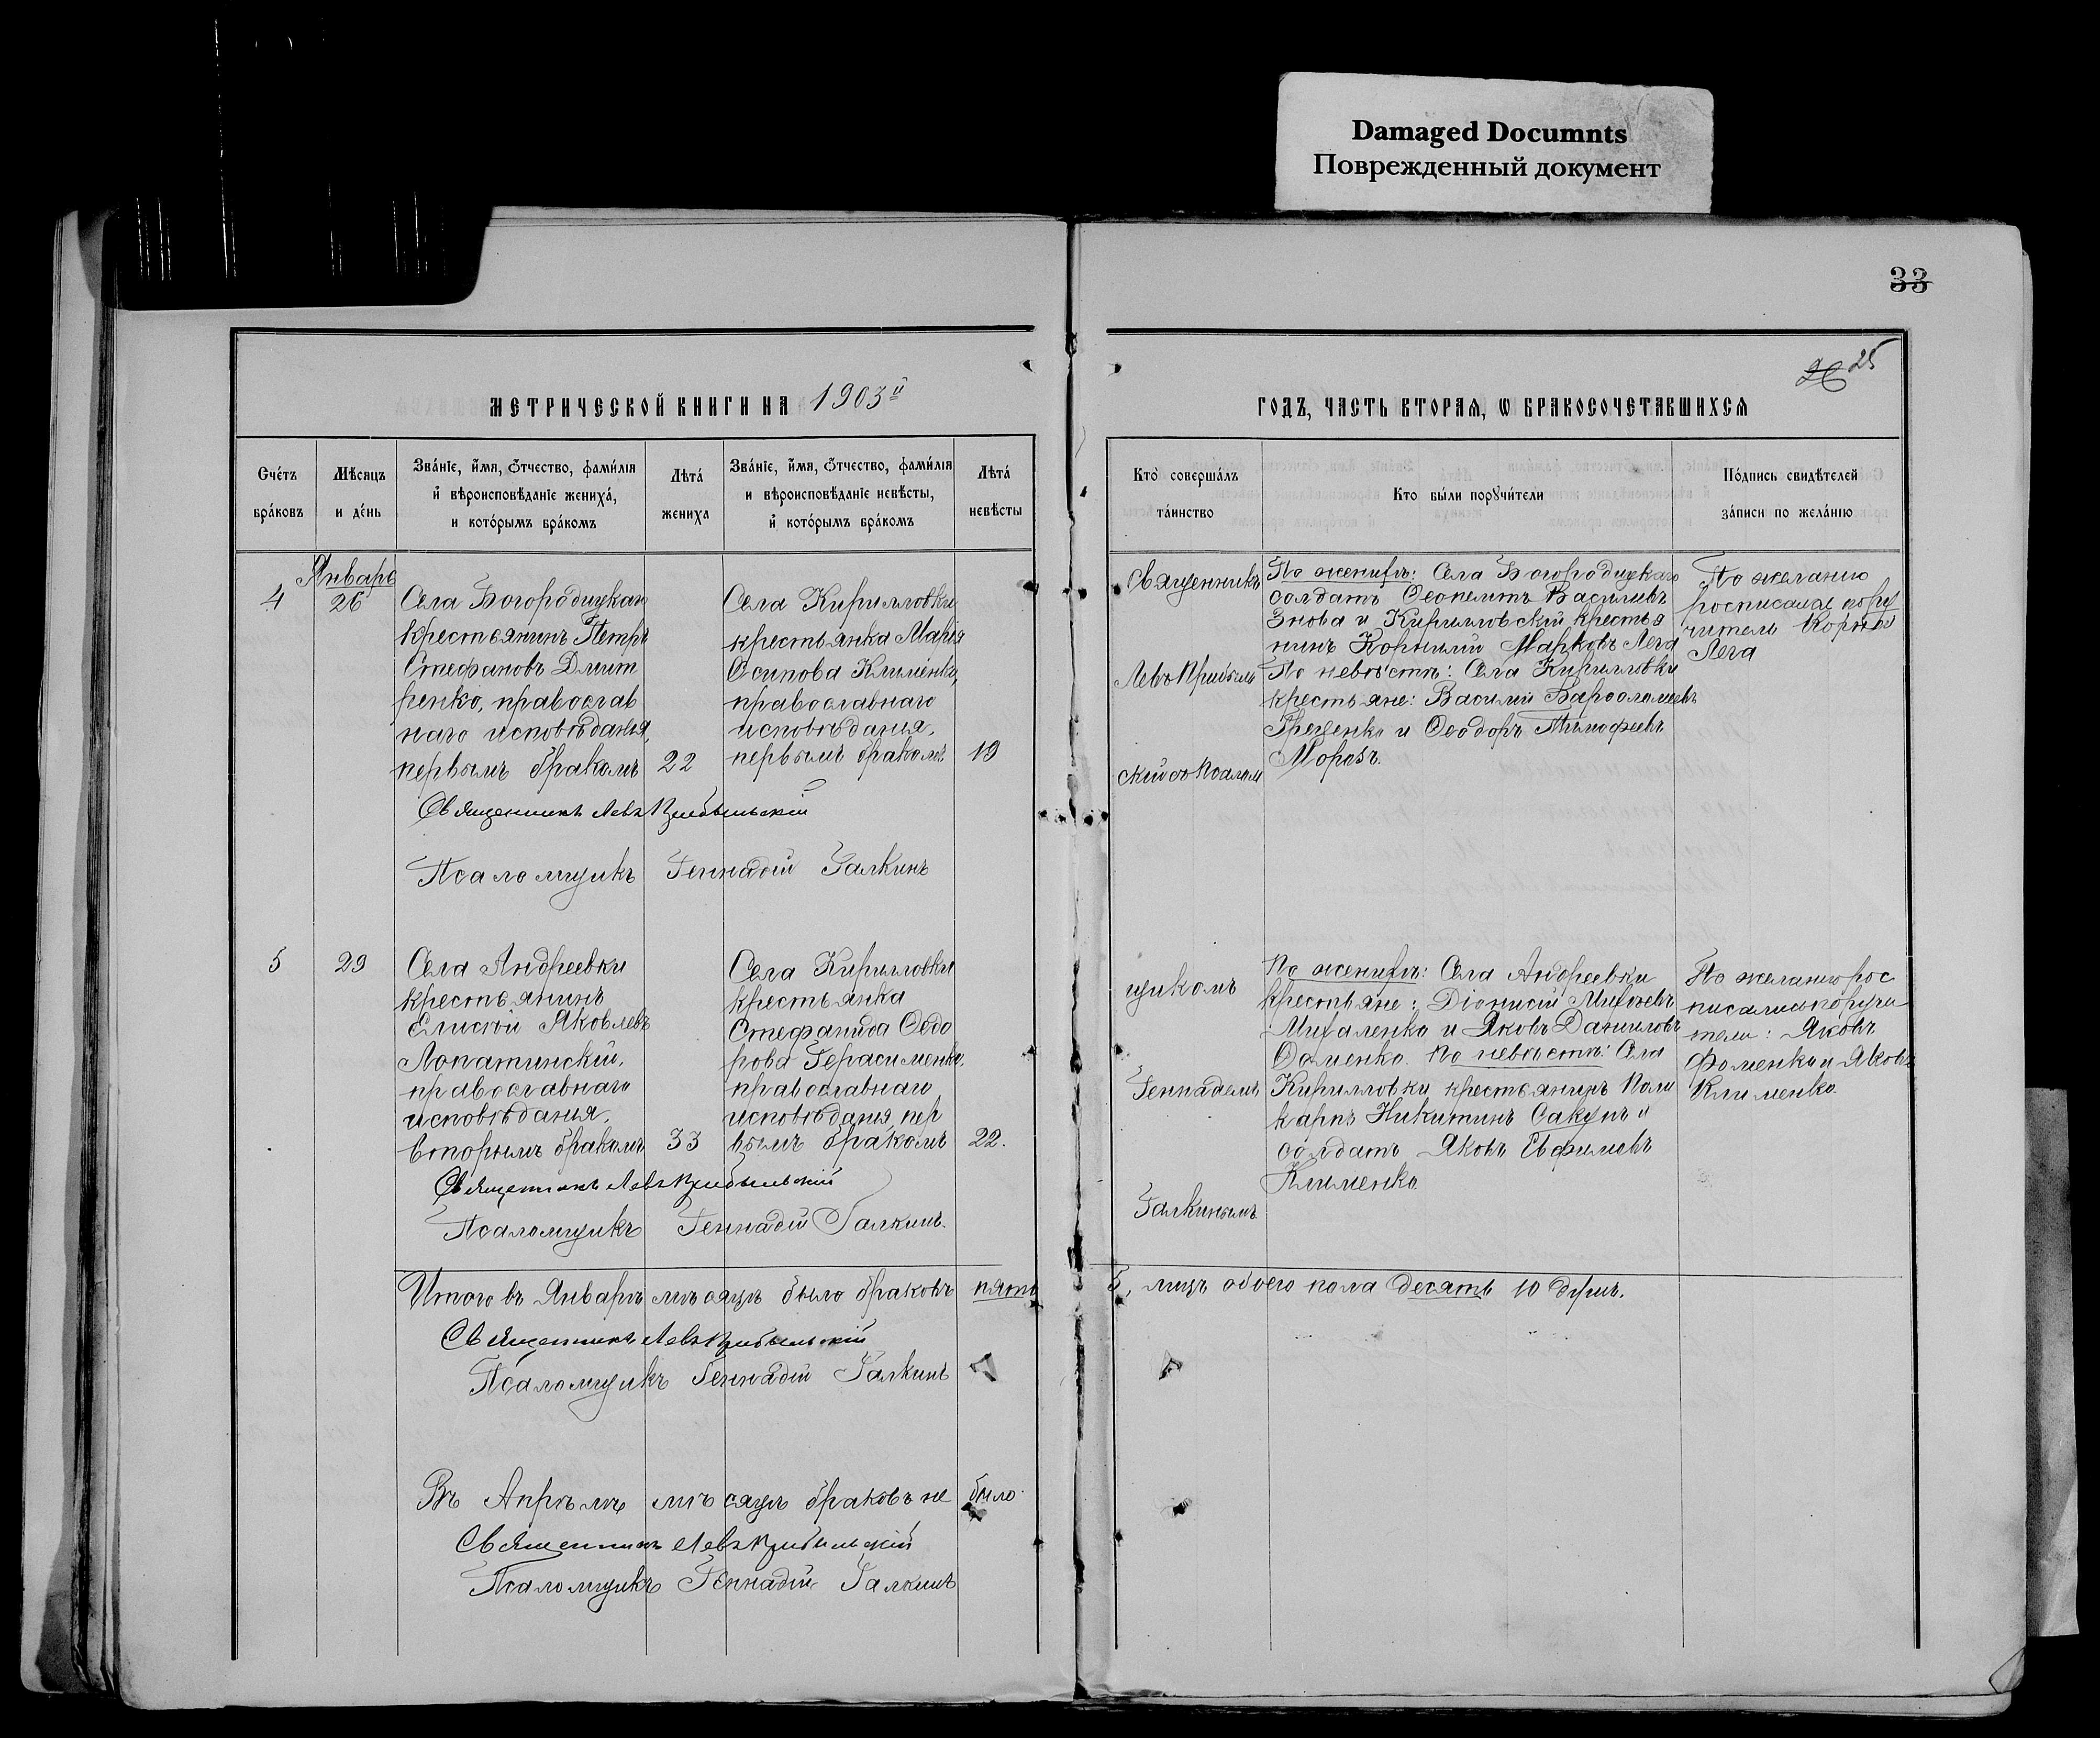 Damaged Documnts
Поврежденный документ
33
26 25
МЕТРИЧЕСКОЙ КНИГИ НА 1903й
ГОДЪ, ЧАСТЬ ВТОРАѦ, Ѡ БРАКОСОЧЕТАВШИХСѦ
Счетъ браковъ
Мѣсяцъ и день
Званіе, имя, отчество, фамилія
и вѣроисповѣданіе жениха,
и которымъ бракомъ
Лѣта жениха
Званіе, имя, отчество, фамилія
и вѣроисповѣданіе невѣсты,
и которымъ бракомъ
Лѣта невѣсты
Кто совершалъ таинство
Кто были поручители
Подпись свидѣтелей
записи по желанію
Январь
4
26
Села Богородицкаго
крестьянинъ Петръ
Стефановъ Дмит
ренко, православ
наго исповѣданія,
первымъ бракомъ
22
Села Кирилловки
крестьянка Марія
Осипова Клименко,
православнаго
исповѣданія,
первымъ бракомъ
19
Священникъ Левъ Прибыльскій
Псаломщикъ Геннадій Галкинъ
5
29
Села Андреевки
крестьянинъ
Елисей Яковлевъ
Лопатинскій,
православнаго
исповѣданія,
вторымъ бракомъ
33
Села Кирилловки
крестьянка
Стефанида Ѳедо
рова Герасименко,
православнаго
исповѣданія, пер
вымъ бракомъ
22.
Священникъ Левъ Прибыльскій
Псаломщикъ Геннадій Галкинъ.
Итого въ Январѣ мѣсяцѣ было браковъ пять
Священникъ Левъ Прибыльскій
Псаломщикъ Геннадій Галкинъ
Въ Апрѣлѣ мѣсяцѣ браковъ не было
Священникъ Левъ Прибыльскій
Псаломщикъ Геннадій Галкинъ
Священникъ
Левъ Прибыль
скій съ Псалом
щикомъ
Геннадіемъ
Галкинымъ
По женихѣ: Села Богородицкаго
солдатъ Василіевъ
и Кирилловскій крестья
нинъ Корнилій Марковъ Лега
По невѣстѣ: Села Кирилловки
крестьяне: Василій Варѳоломеевъ
Греценко и Ѳеодоръ Тимофеевъ
Морозъ.
По желанію
росписался пору
читель Корнилій
Лега
По женихѣ: Села Андреевки
крестьяне: Діонисій Михеевъ
Михаленко и Яковъ Даниловъ
Ѳоменко. По невѣстѣ: Села
Кирилловки крестьянинъ Поли
карпъ Никитинъ Сакунъ и
солдатъ Яковъ Евфимовъ
Клименко.
По желанію рос
писались поручи
тели: Яковъ
Фоменко и Яковъ
Клименко.
5, лицъ обоего пола десять 10 душъ.